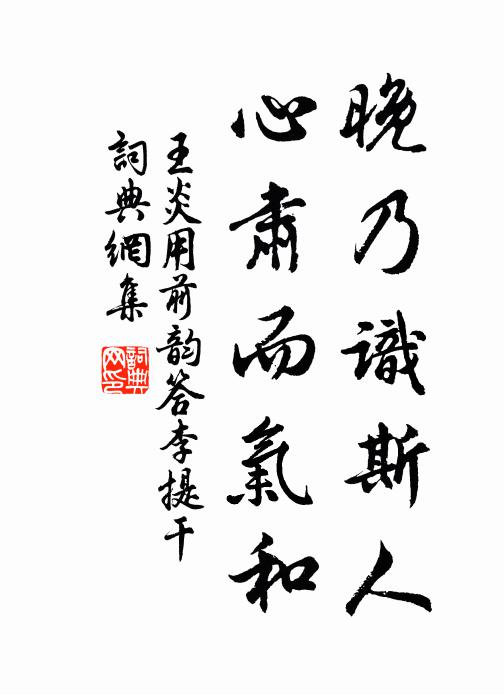 晚乃識斯人
心肅而氣和
王炎用前韵答李提干
詞典網集
詞典網印